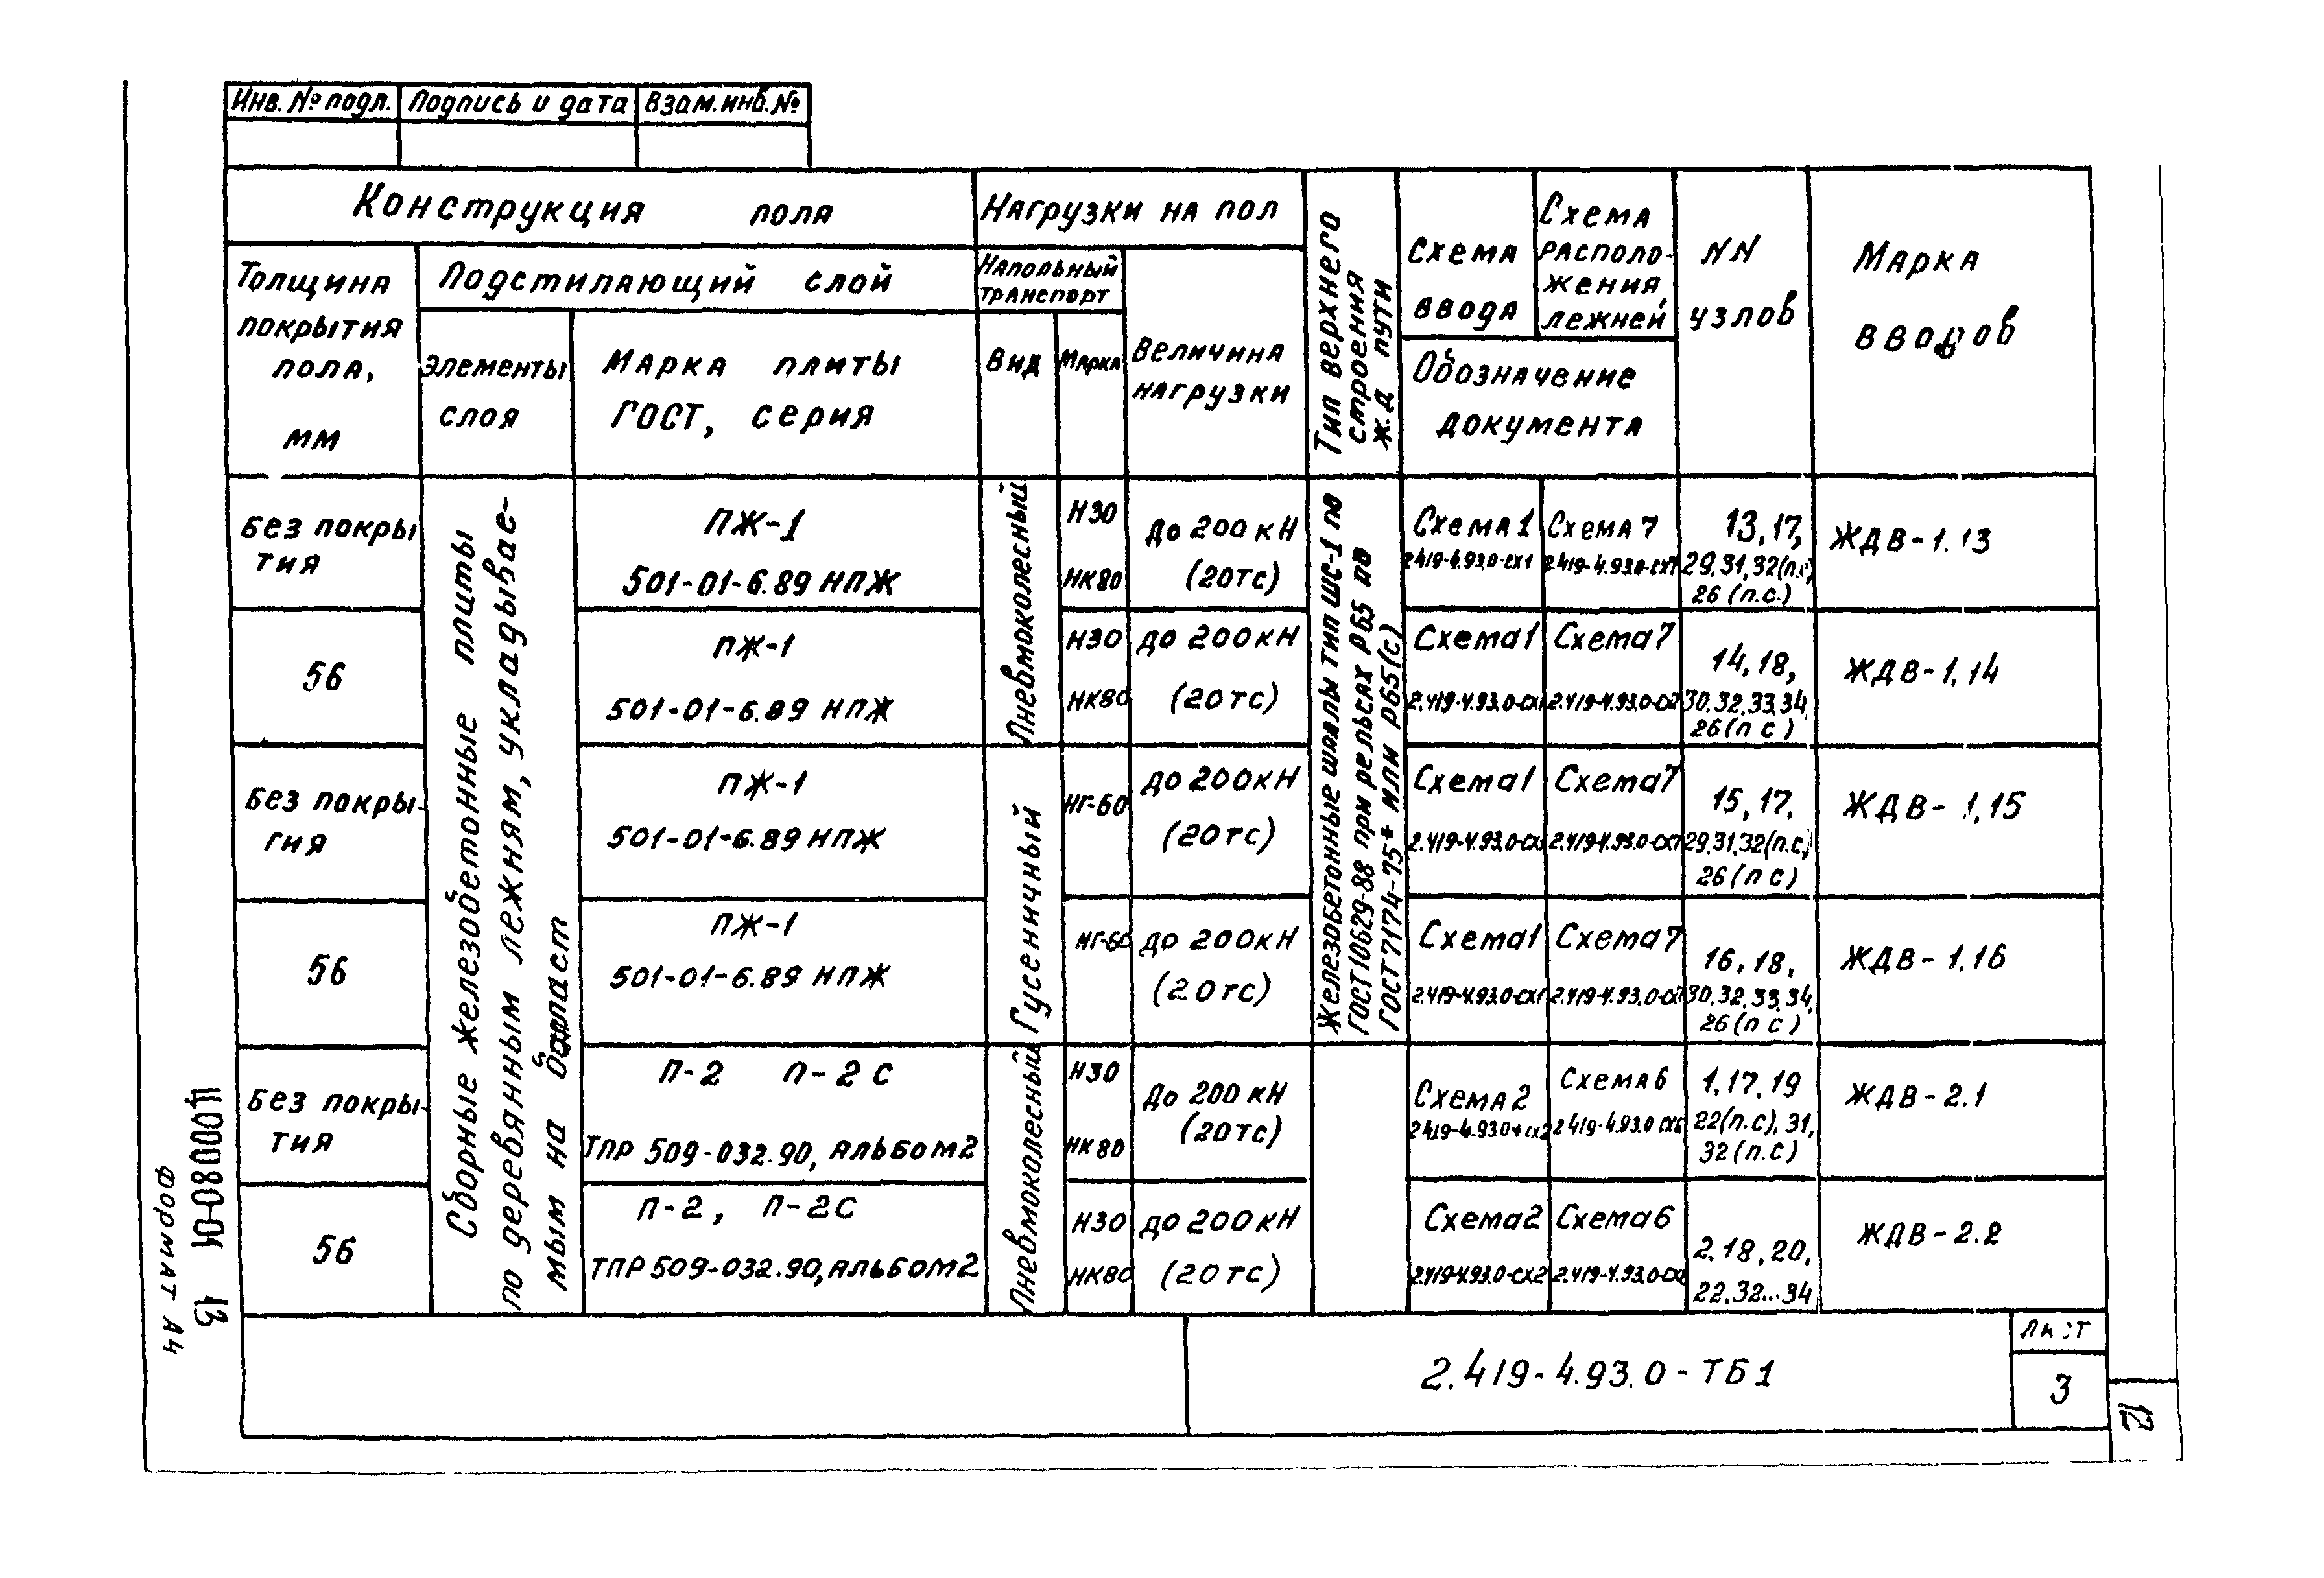 Инв. № подл. Подпись и дата Взам. инв. №
Конструкция пола
Нагрузки на пол
Тип верхнего
строения
ж.д. пути
Схема
ввода
Схема
располо-
жения
лежней
Обозначение
документа
NN
узлов
Марка
вводов
Толщина
покрытия
пола,
мм
Подстилающий слой
Элементы
слоя
Марка плиты
ГОСТ, серия
Напольный
транспорт
Вид
Марка
Величина
нагрузки
Сборные железобетонные плиты
по деревянным лежням, укладывае-
мым на балласт
Железобетонные шпалы тип ШС-1 по
ГОСТ 10629-88 при рельсах Р65 по
ГОСТ 7174-75* или Р65(с)
Без покры
тия
ПЖ-1
501-01-6.89 НПЖ
Пневмоколесный
Н30
НК80
До 200 кН
(20тс)
Схема 1
2.419-4.93.0-СХ1
Схема 7
2.419-4.93.0-СХ7
13,17,
29,31,32(п.с)
26 (п.с.)
ЖДВ-1.13
56
ПЖ-1
501-01-6.89 НПЖ
Н30
НК80
до 200 кН
(20тс)
Схема 1
2.419-4.93.0-СХ1
Схема 7
2.419-4.93.0-СХ7
14,18,
30.32.33.34
26(п с)
ЖДВ-1.14
Без покры-
тия
ПЖ-1
501-01-6.89 НПЖ
Гусеничный
НГ-60
до 200кН
(20тс)
Схема 1
2.419-4.93.0-СХ1
Схема 7
2.419-4.93.0-СХ7
15,17,
29,31,32(п.с)
26 (п с)
ЖДВ-1.15
56
ПЖ-1
501-01-6.89 НПЖ
НГ-60
до 200кН
(20тс)
Схема 1
2.419-4.93.0-СХ1
Схема 7
2.419-4.93.0-СХ7
16,18,
30.32.33.34.
26(п с)
ЖДВ-1.16
Без покры-
тия
П-2 П-2 С
ТПР 509-032.90, Альбом 2
Пневмоколесный
Н30
НК80
До 200 кН
(20тс)
Схема 2
2.419-4.93.0-СХ2
Схема 6
2.419-4.93.0 СХ6
1,17,19
22(п.с), 31,
32(п.с)
ЖДВ-2.1
56
П-2, П-2С
ТПР 509-032.90, Альбом 2
Пневмоколесный
Н30
НК80
до 200 кН
(20тс)
Схема 2
2.419-4.93.0-СХ2
Схема 6
2.419-4.93.0-СХ6
2.18,20,
22,32...34
ЖДВ-2.2
2.419-4.93.0-ТБ1
Лист
3
12
Ц00080-01 13
Формат А4